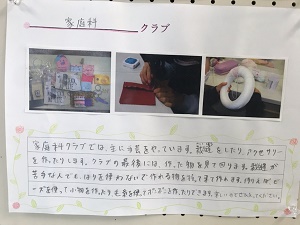 家庭科 クラブ
家庭科クラブでは、主に手芸をやっています。裁縫をしたり、アクセサリー
を作ったりします。クラブの最後には、作った物を見て回ります。裁縫が
苦手な人でも、はりを使わないで作れる物を
ーズを使って小物を作ったり、毛糸を使ってポンポンを作ったりできます。